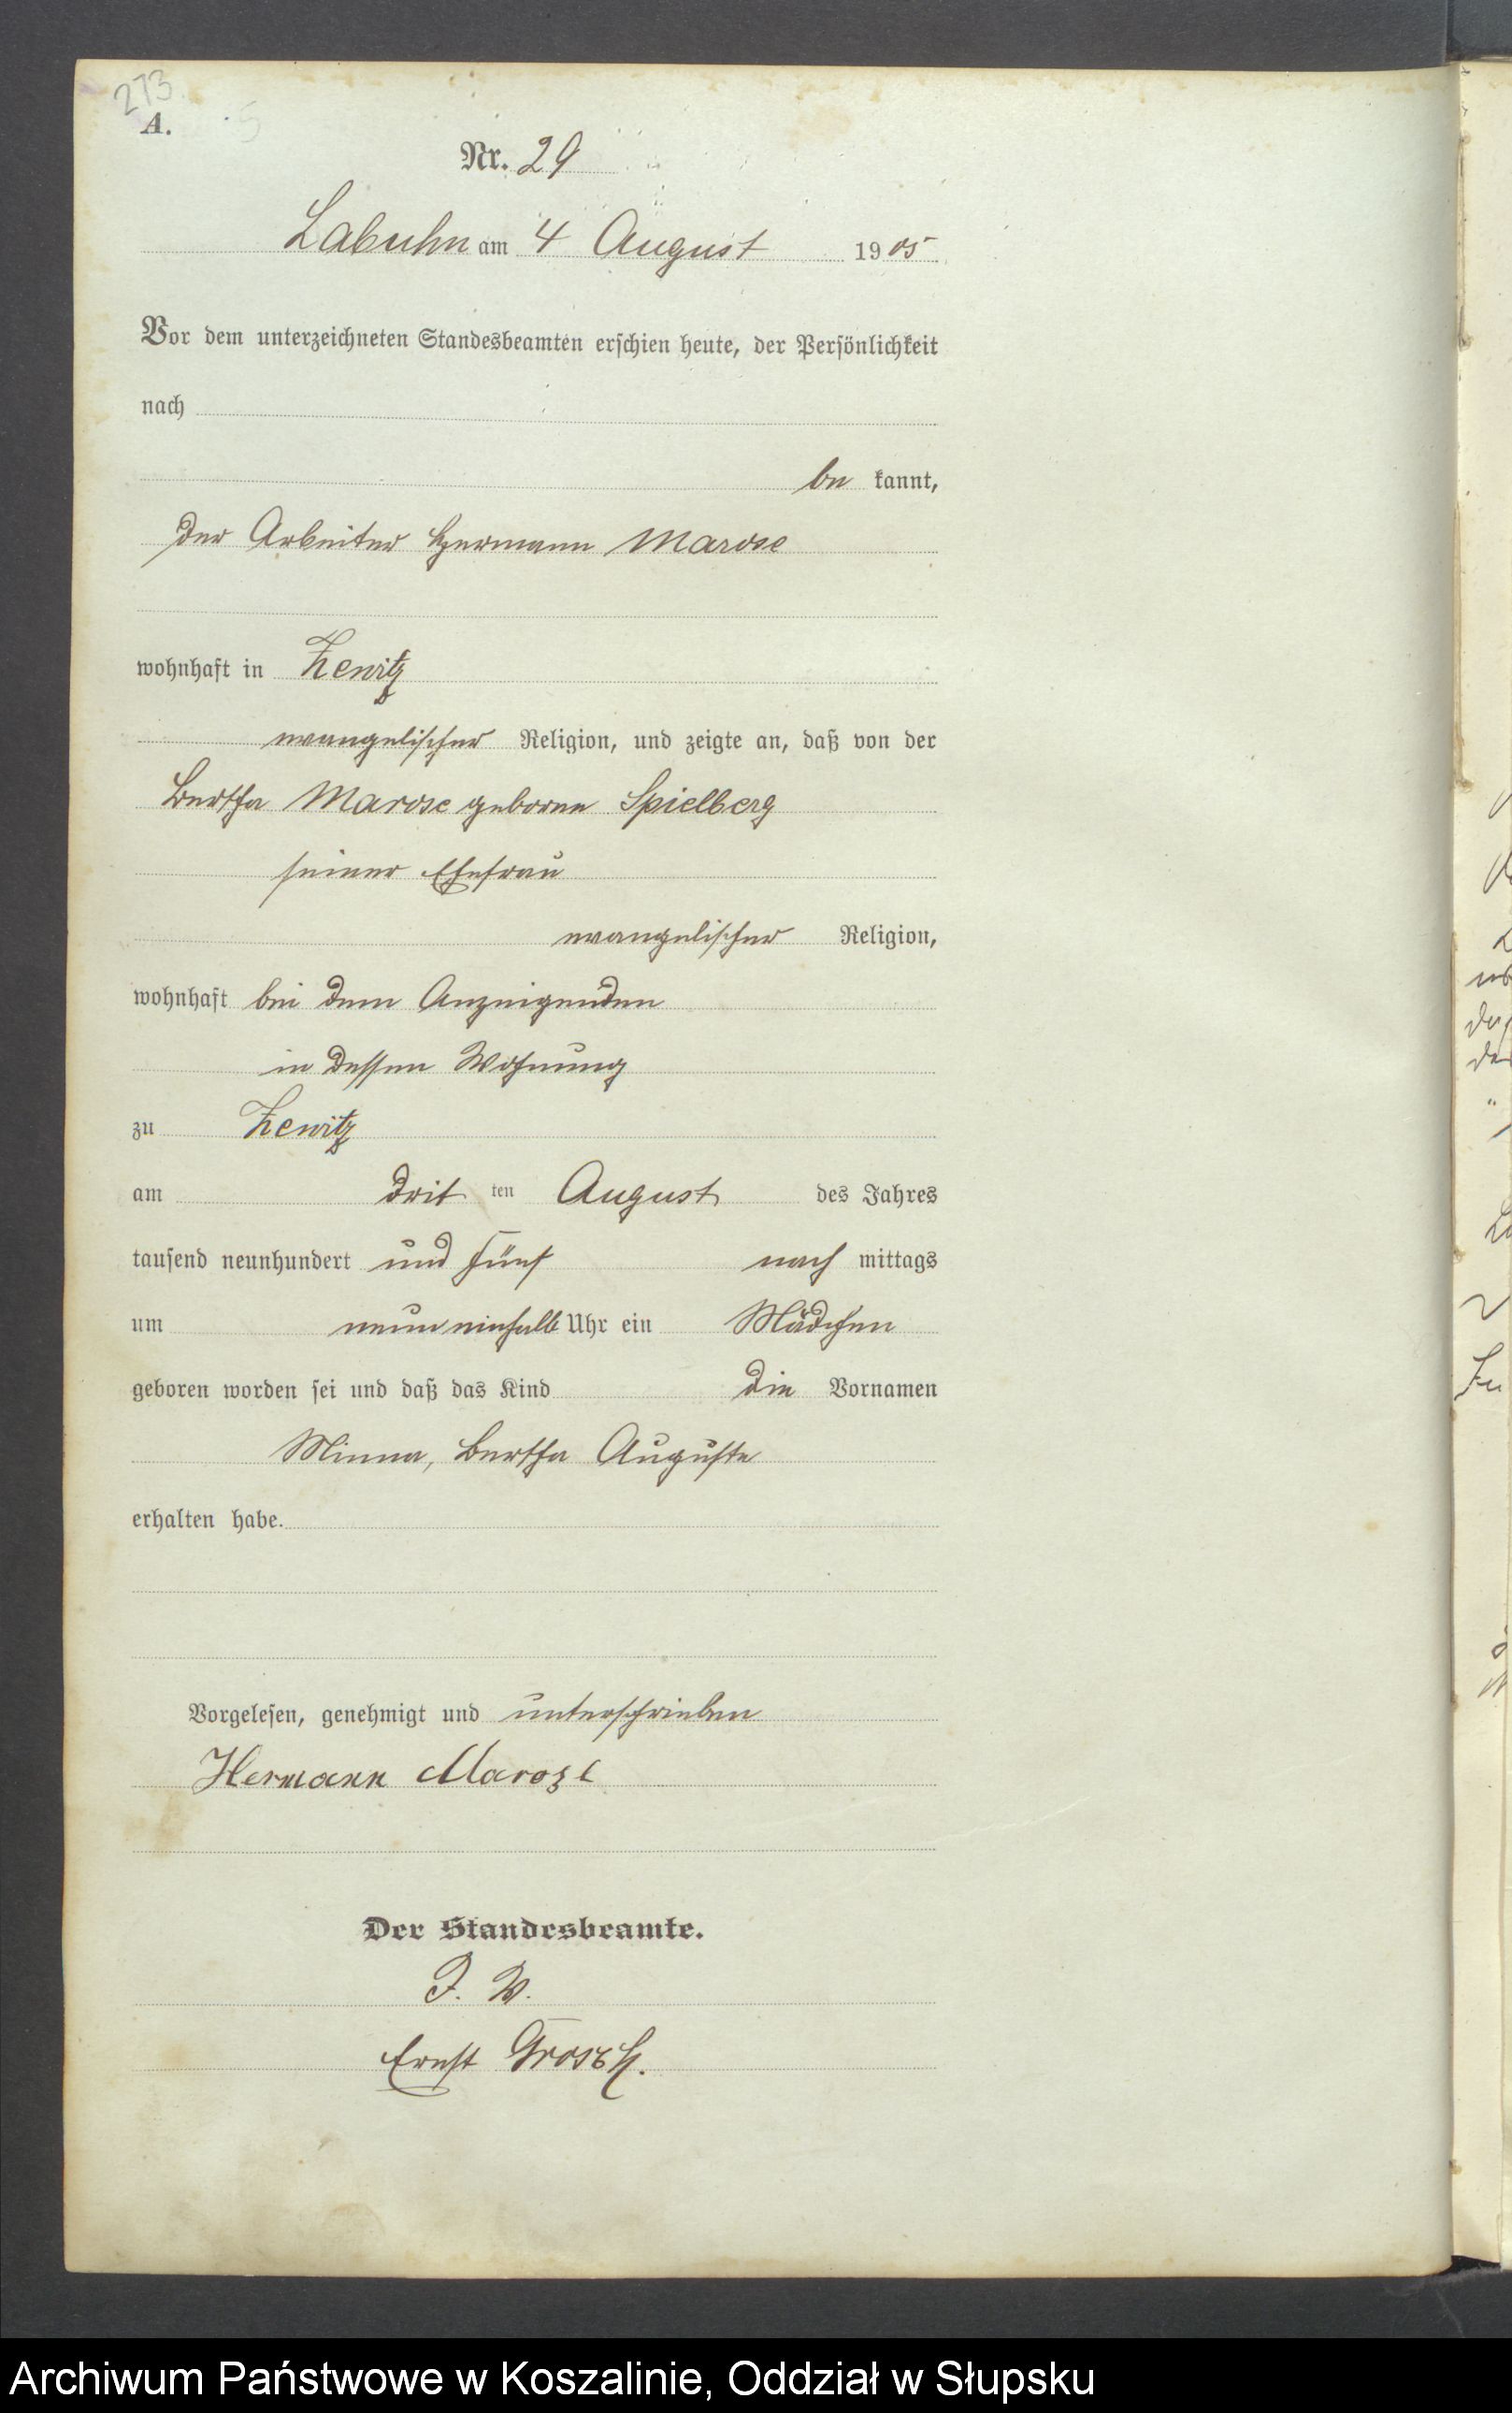 273.
A.
Nr. 29
Labuhn am 4 August 1905
Vor dem unterzeichneten Standesbeamten erschien heute, der Persönlichkeit
nach
be kannt,
der Arbeiter Hermann Marose
wohnhaft in Zewitz
evangelischer Religion, und zeigte an, daß von der
Bertha Marose geborne Spielberg
seiner Ehefrau
evangelischer Religion,
wohnhaft bei dem Anzeigenden
in dessen Wohnung
zu Zewitz
am drit ten August des Jahres
tausend neunhundert und fünf nach mittags
um neun einhalb Uhr ein Mädchen
geboren worden sei und daß das Kind die Vornamen
Minna, Bertha Auguste
erhalten habe.
Vorgelesen, genehmigt und unterschrieben
Hermann Marose
Der Standesbeamte.
I. V.
Ernst
Archiwum Państwowe w Koszalinie, Oddział w Słupsku